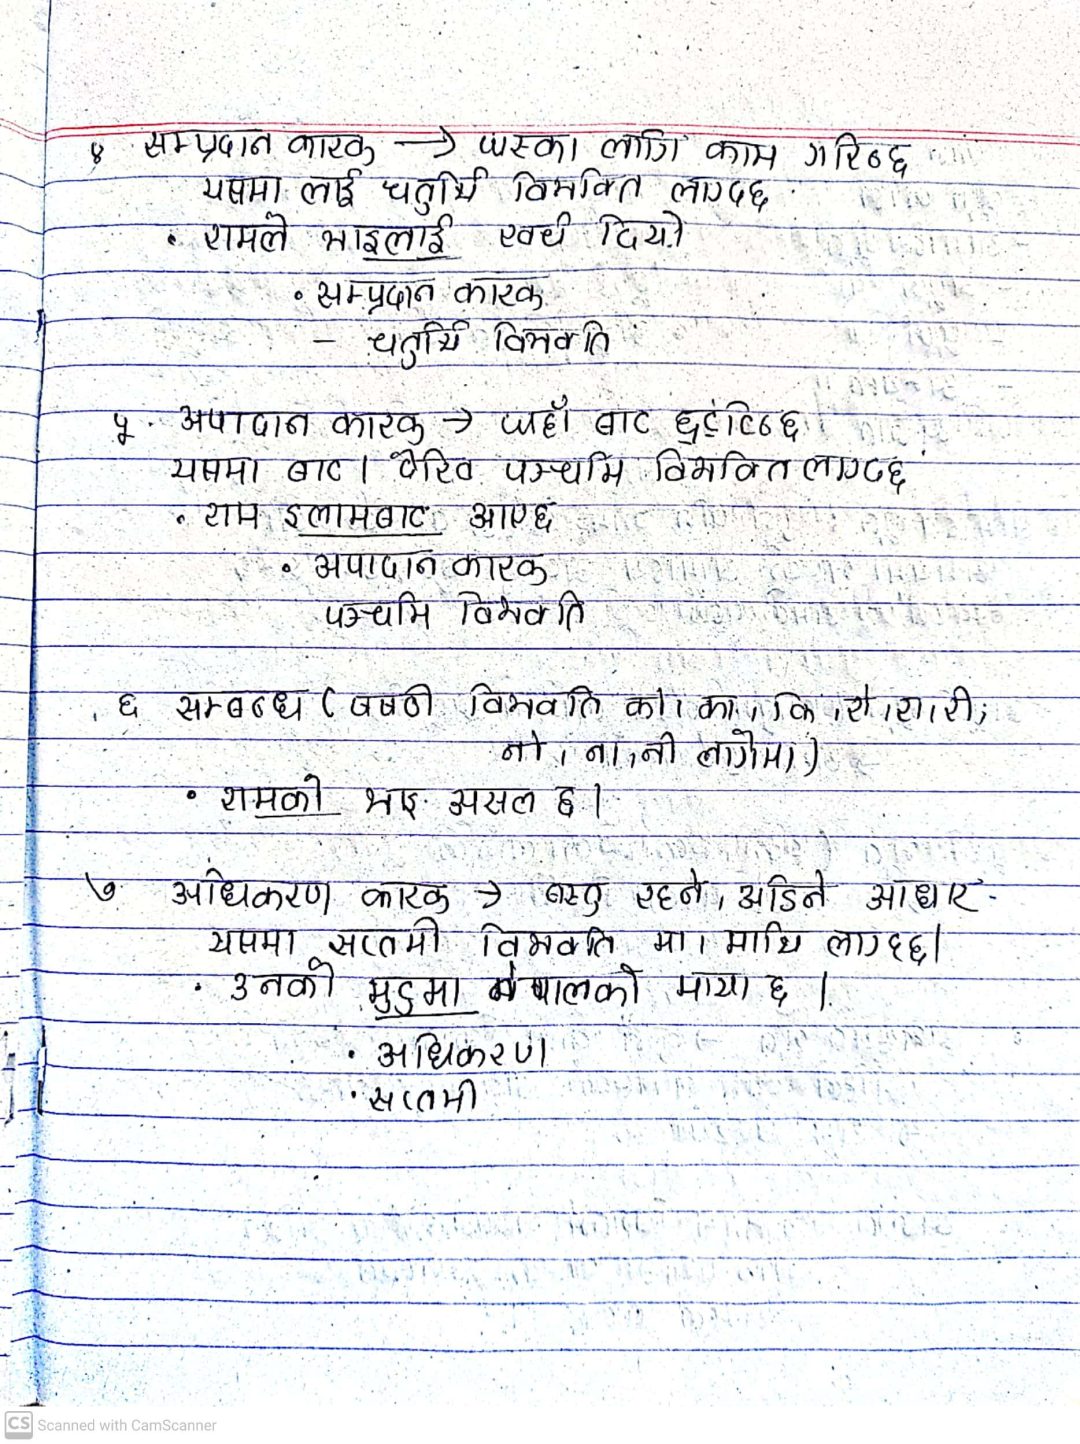 ४ सम्प्रदान कारक → जस्का लागि काम गरिन्छ
यसमा लाई चतुर्थि विभक्ति लाग्दछ
• रामले भाइलाई खर्च दियो
• सम्प्रदान कारक
- चतुर्थि विभक्ति
५. अपादान कारक → जहाँ बाट छुट्टिन्छ
यसमा बाट। देखि पञ्चमि विभक्ति लाग्दछ
• राम इलामबाट आएछ
• अपादान कारक
पञ्चमि विभक्ति
६ सम्बन्ध ( षष्ठी विभक्ति को। का, कि, रो, रा, री,
नो, ना, नी लागेमा)
• रामको भाइ असल छ।
७ अधिकरण कारक → वस्तु रहने, अडिने आधार
यसमा सप्तमी विभक्ति मा। माथि लाग्दछ।
• उनको मुटुमा नेपालको माया छ।
• अधिकरण
• सप्तमी
CS Scanned with CamScanner